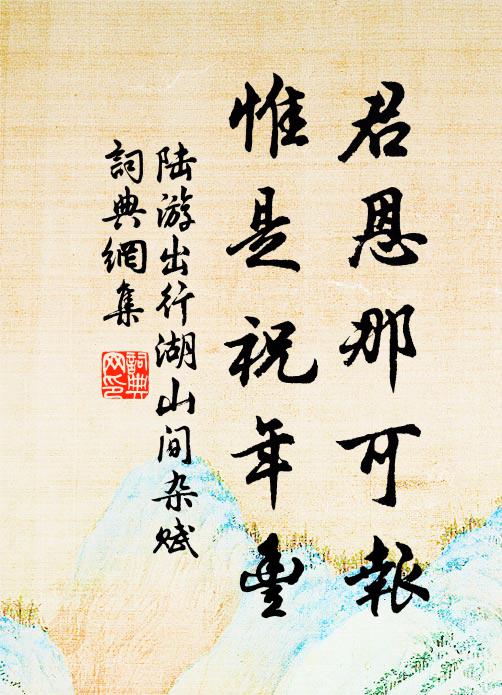 君恩那可報
惟是祝年豐
陆游出行湖山间杂赋
詞典網集
詞典
网印